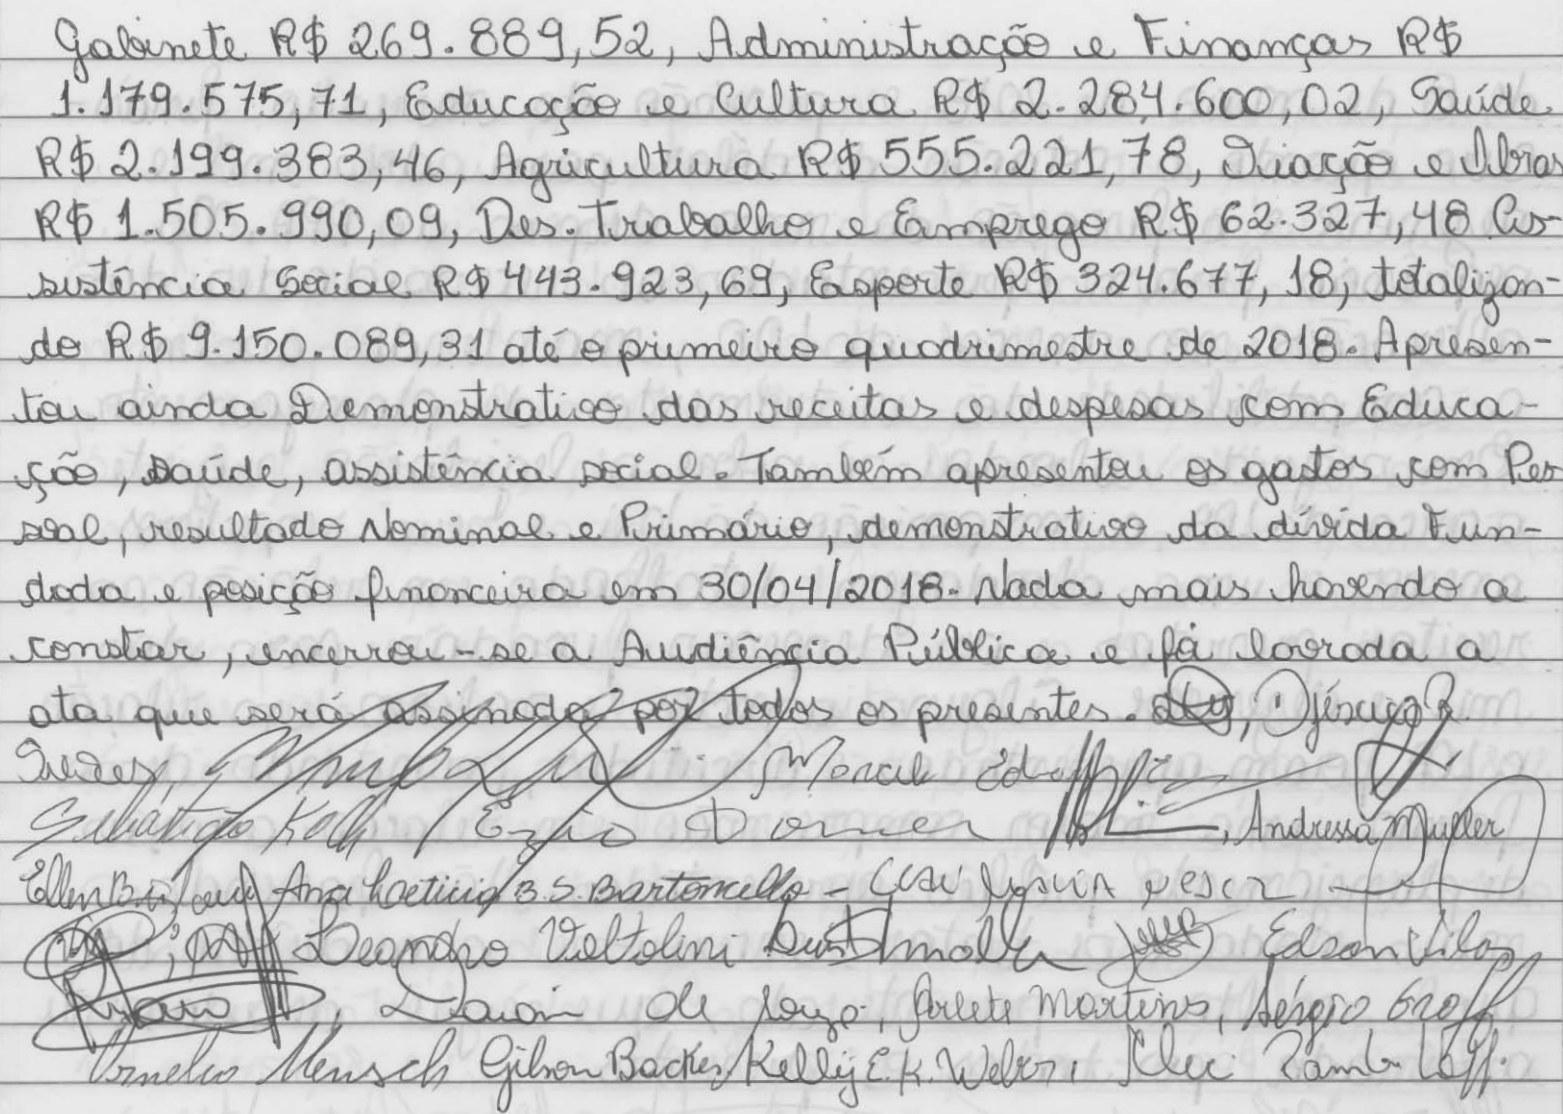 Gabinete R$ 269.889,52, Administração e Finanças R$
1.179.575,71, Educação e Cultura R$ 2.284.600,02, Saúde
R$ 2.199.383,46, Agricultura R$ 555.221,78, Viação e Obras
R$ 1.505.990,09, Des. Trabalho e Emprego R$ 62.327,48 As-
sistência Social R$ 443.923,69, Esporte R$ 324.677,18, totalizan-
do R$ 9.150.089,31 até o primeiro quadrimestre de 2018. Apresen-
tou ainda Demonstrativo das receitas e despesas com Educa-
ção, saúde, assistência social. Também apresentou os gastos com Pes
soal, resultado Nominal e Primário, demonstrativo da dívida Fun-
dada e posição financeira em 30/04/2018. Nada mais havendo a
constar, encerrou-se a Audiência Pública e foi lavrada a
ata que será assinada por todos os presentes.
Andressa Muller
Ana Laeticia B. S. Bartoncello
Leandro Voltolini Edson
de Arlete Martins, Sérgio
Mensch Gilson Backes Kelly E. K.